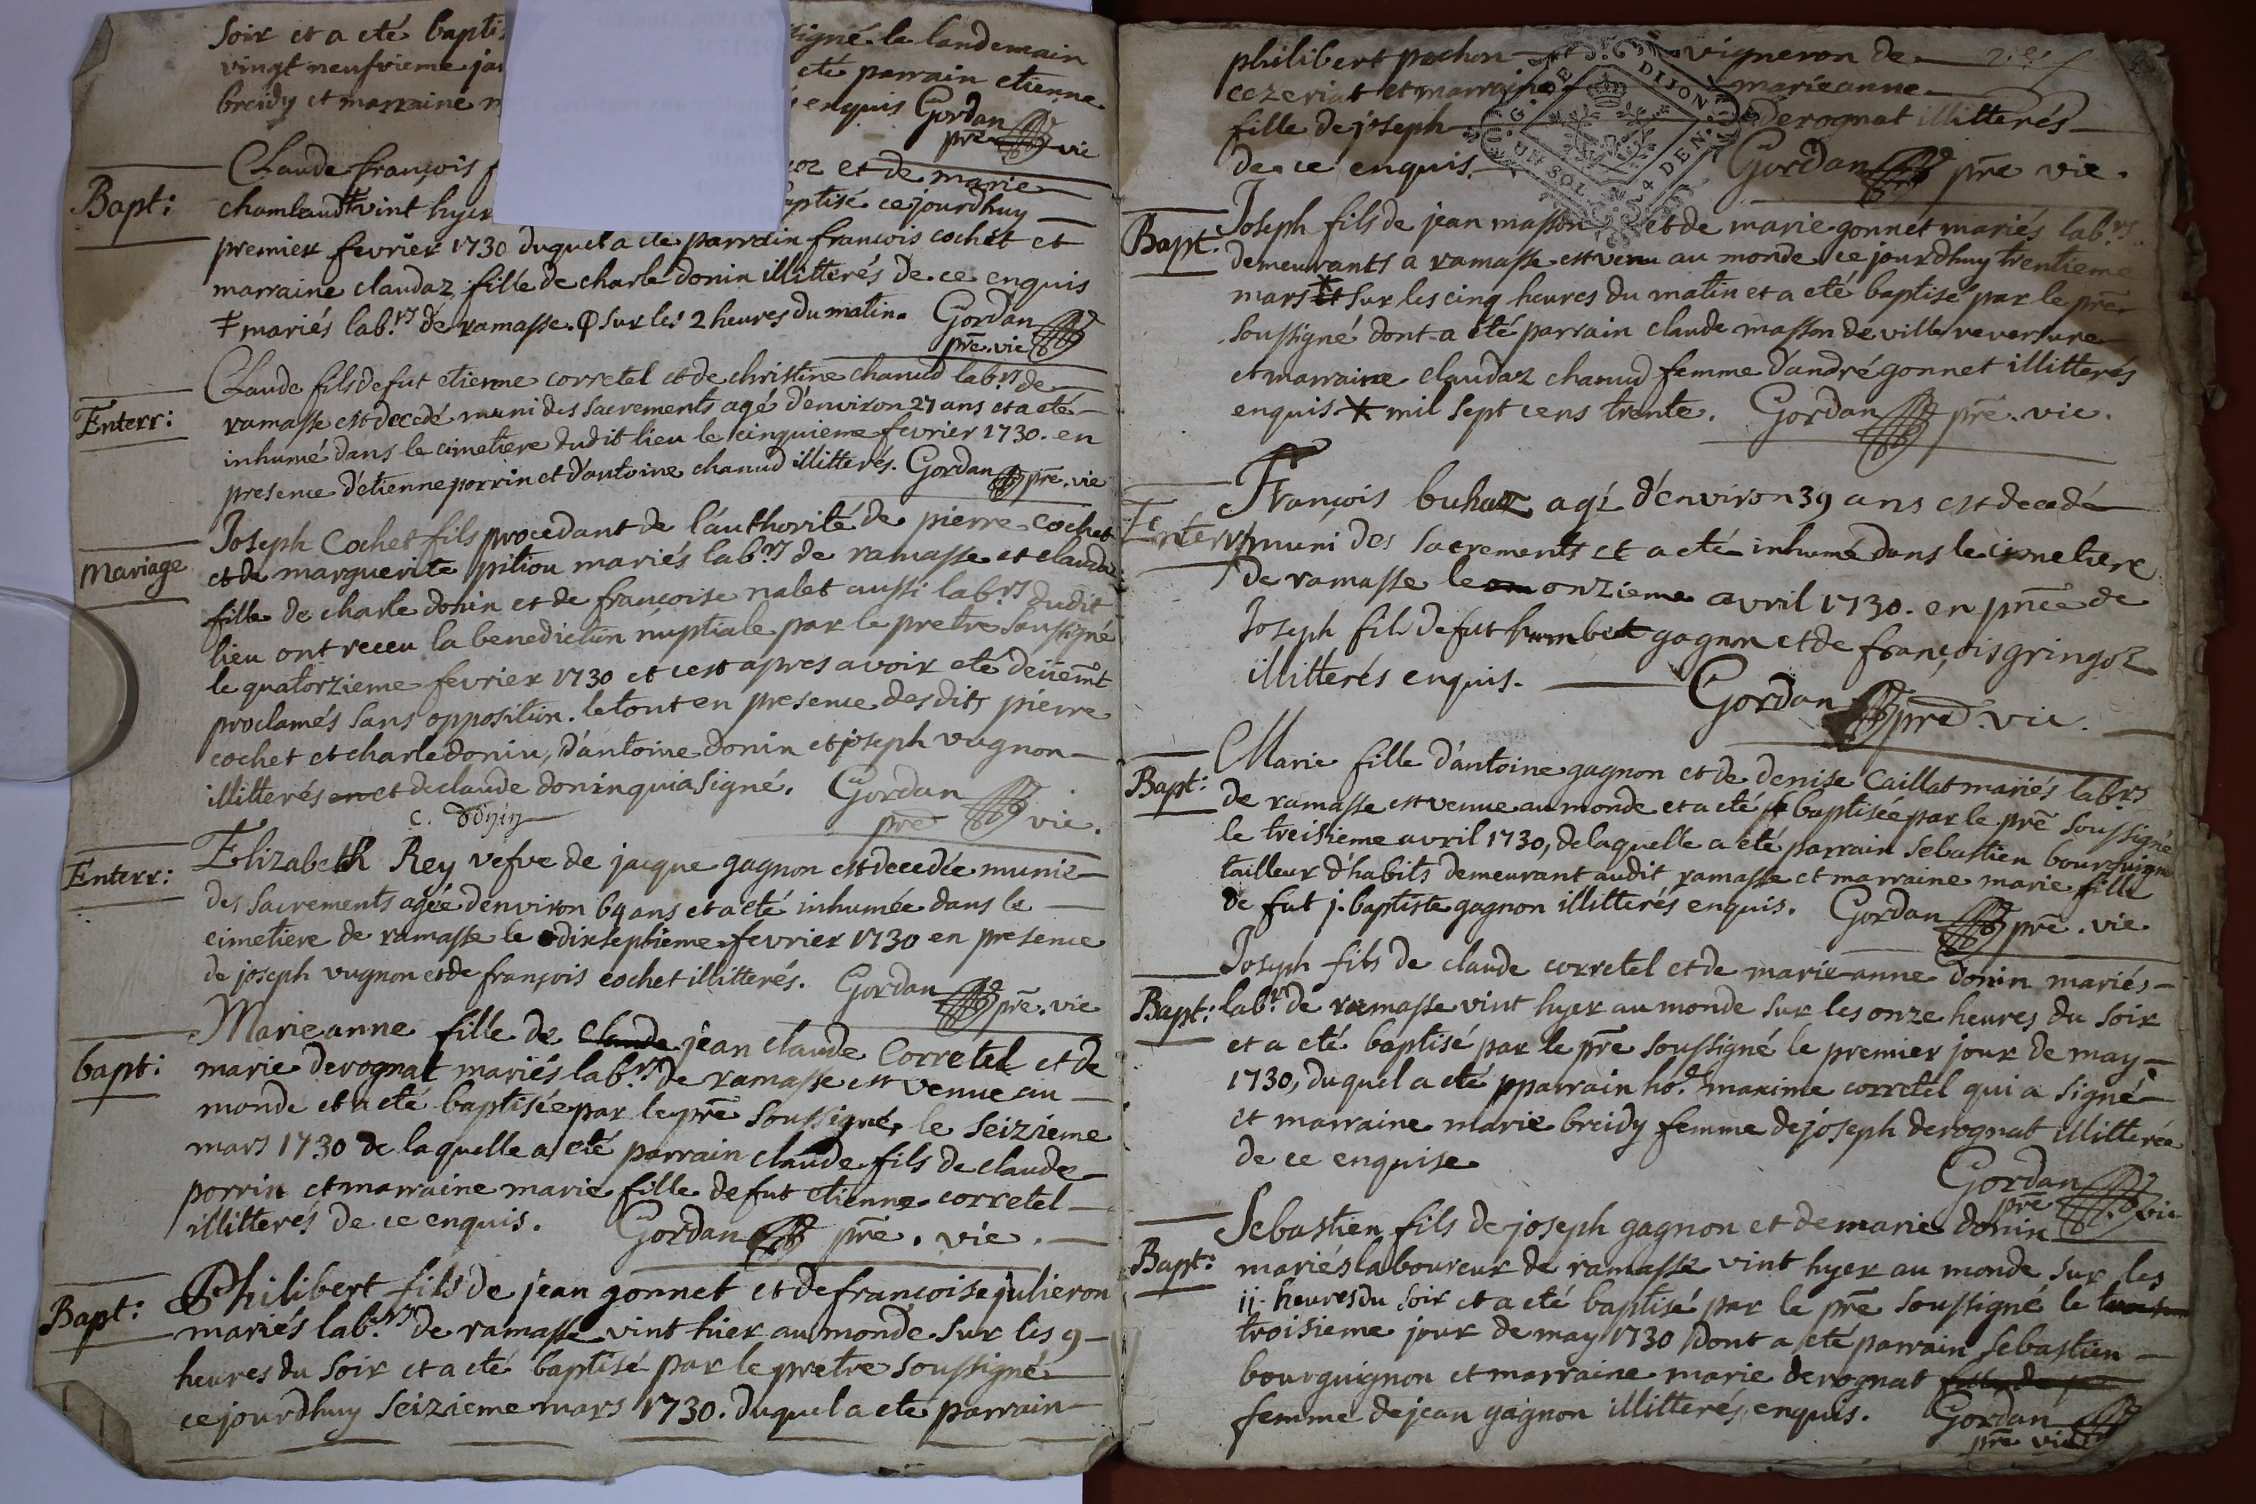 soir et a eté baptis signé le landemain
vingt neufvieme jan eté parrain etienne
breidy et marraine m enquis Gordan
prē vic
Bapt:
Claude françois f oz et de marie
chanaud ‡ vint hyer aptisé ce jourdhuy
premier fevrier 1730 duquel a eté parrain francois cochet et
marraine claudaz fille de charle donin illitterés de ce enquis
‡ mariés lab.rs de ramasse. φ sur les 2 heures du matin. Gordan
prē. vic
Enterr:
Claude fils de fut etienne corretel et de christine chanud lab.rs de
ramasse est decedé muni des sacrements agé d'environ 27 ans et a eté
inhumé dans le cimetiere dudit lieu le cinquieme fevrier 1730. en
presence d'etienne porrin et d'antoine chanud illitterés. Gordan prē. vic
Mariage
Joseph Cochet fils procedant de l'authorité de pierre cochet
et de marguerite pitiou mariés lab.rs de ramasse et claudaz
fille de charle donin et de françoise nalet aussi lab.rs dudit
lieu ont receu la benediction nuptiale par le pretre soussigné
le quatorzieme fevrier 1730 et c'est apres avoir eté deüem̄t
proclamés sans opposition. le tout en presence desdits pierre
cochet et charle donin, d'antoine donin et joseph vugnon
illitterés en et de claude donin qui a signé. Gordan
c. donin prē vic.
Enterr:
Elizabeth Rey vefve de jacque gagnon est decedée munie
des sacrements agée d'environ 64 ans et a eté inhumée dans le
cimetiere de ramasse le dixseptieme fevrier 1730 en presence
de joseph vugnon et de françois cochet illitterés. Gordan prē. vic
bapt:
Marieanne fille de claude jean claude Corretel et de
marie derognat mariés lab.rs de ramasse est venue au
monde et a eté baptisée par le prē soussigné, le seizieme
mars 1730 de laquelle a eté parrain claude fils de claude
porrin et marraine marie fille de fut etienne corretel
illitterés de ce enquis. Gordan prē. vic.
Bapt:
Philibert fils de jean gonnet et de françoise julieron
mariés lab.rs de ramasse vint hier au monde sur les 9
heures du soir et a eté baptisé par le pretre soussigné
ce jourdhuy seizieme mars 1730. duquel a eté parrain
philibert pochon vigneron de
cezeriat et marraine marieanne
fille de joseph derognat illitterés
de ce enquis. Gordan prē vic.
G. DE DIJON
UN SOL 4 DEN.
Bapt:
Joseph fils de jean masson et de marie gonnet mariés lab.rs
demeurants a ramasse est venu au monde ce jourdhuy trentieme
mars et sur les cinq heures du matin et a eté baptisé par le prē
soussigné dont a été parrain claude masson de ville reversure
et marraine claudaz chanud femme d'andré gonnet illitterés
enquis * mil sept cens trente. Gordan prē. vic.
Enterr:
François buhaz agé d'environ 39 ans est decedé
muni des sacrements et a eté inhumé dans le cimetiere
de ramasse le onzieme avril 1730. en pñce de
Joseph fils de fut humbert gagnon et de françois gringoz
illitterés enquis.
Gordan prē. vic.
Bapt:
Marie fille d'antoine gagnon et de denise Caillat mariés lab.rs
de ramasse est venue au monde et a eté baptisée par le prē soussigné
le treisieme avril 1730, de laquelle a été parrain sebastien bourguign
tailleur d'habits demeurant audit ramasse et marraine marie fille
de fut j. baptiste gagnon illitterés enquis. Gordan prē. vic
Bapt:
Joseph fils de claude corretel et de marie anne donin mariés
lab.rs de ramasse vint hyer au monde sur les onze heures du soir
et a eté baptisé par le prē soussigné le premier jour de may
1730, duquel a eté pparrain ho.e maxime corretel qui a signé
et marraine marie breidy femme de joseph derognat illitterée
de ce enquise
Gordan
prē vic
Bapt:
Sebastien fils de joseph gagnon et de marie donin
mariés laboureur de ramasse vint hyer au monde sur les
ii. heures du soir et a eté baptisé par le prē soussigné le
troisieme jour de may 1730 dont a eté parrain sebastien
bourguignon et marraine marie derognat
femme de jean gagnon illitterés enquis. Gordan
prē vic